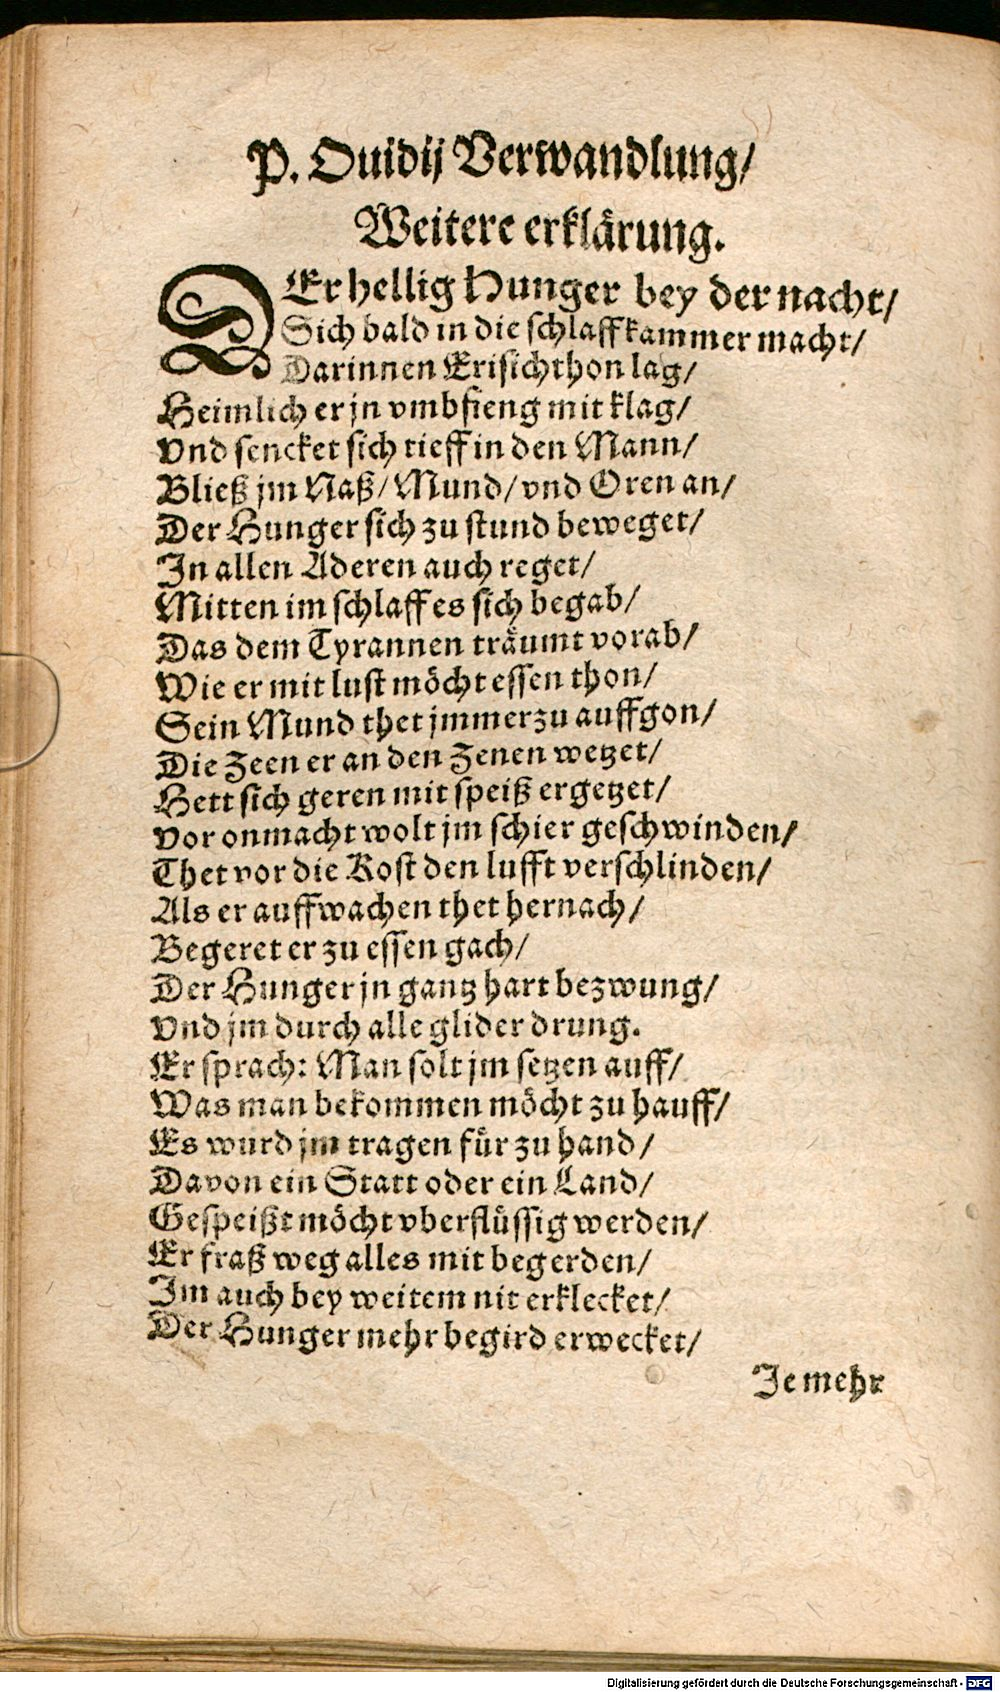 P. Ouidij Verwandlung/
Weitere erklärung.
DEr hellig Hunger bey der nacht/
Sich bald in die schlaffkammer macht/
Darinnen Erisichthon lag/
Heimlich er jn vmbfieng mit klag/
Vnd sencket sich tieff in den Mann/
Bließ jm Naß/ Mund/ vnd Oren an/
Der Hunger sich zu stund beweget/
In allen Aderen auch reget/
Mitten im schlaff es sich begab/
Das dem Tyrannen träumt vorab/
Wie er mit lust möcht essen thon/
Sein Mund thet jmmerzu auffgon/
Die Zeen er an den Zenen wetzet/
Hett sich geren mit speiß ergetzet/
Vor onmacht wolt jm schier geschwinden/
Thet vor die Kost den lufft verschlinden/
Als er auffwachen thet hernach/
Begeret er zu essen gach/
Der Hunger jn gantz hart bezwung/
Vnd jm durch alle glider drung.
Er sprach: Man solt jm setzen auff/
Was man bekommen möcht zu hauff/
Es wurd jm tragen für zu hand/
Davon ein Statt oder ein Land/
Gespeißt möcht vberflüssig werden/
Er fraß weg alles mit begerden/
Im auch bey weitem nit erklecket/
Der Hunger mehr begird erwecket/
Je mehr
Digitalisierung gefördert durch die Deutsche Forschungsgemeinschaft - DFG